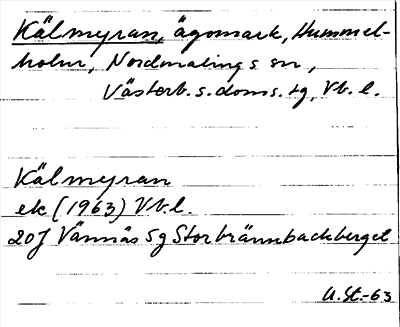 Kälmyran, ägomark, Hummel-
holm, Nordmalings sn,
Västerb. s. doms. tg, Vb. l.
Kälmyran
ek (1963) Vb. l.
20J Vännäs 5g Storbrännbackberget
U. St. -63